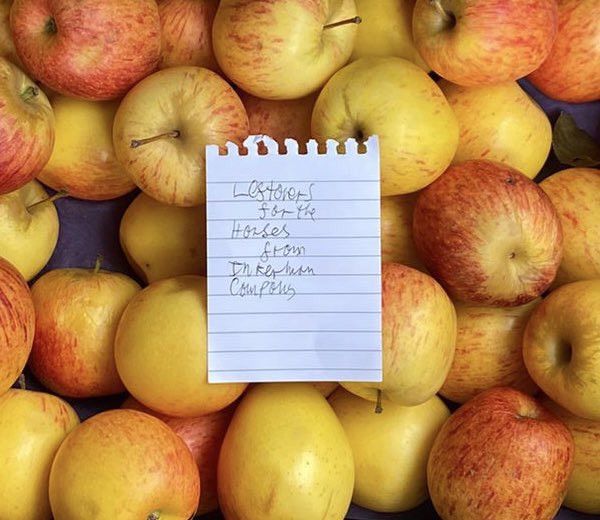 Leftovers
for the
Horses
from
Inkerman
Company